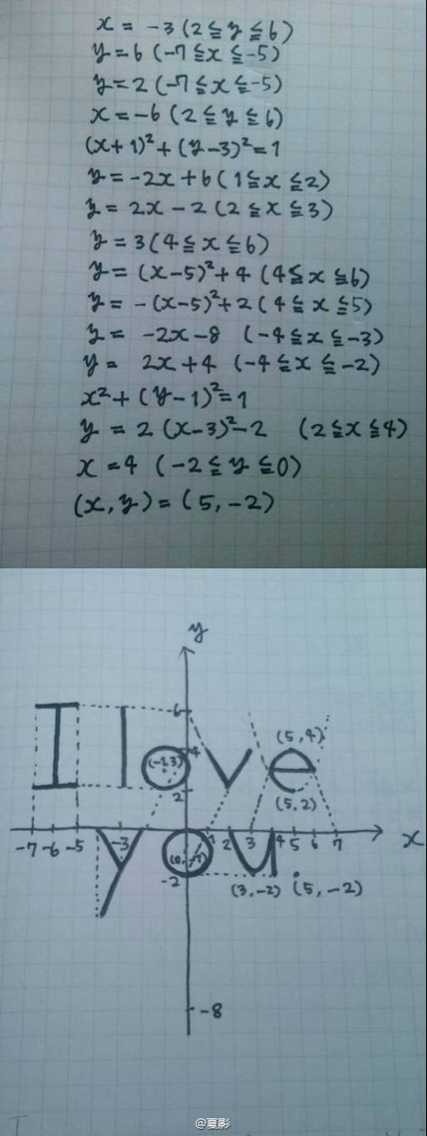 x = -3 (2 ≦ y ≦ 6)
y = 6 (-7 ≦ x ≦ -5)
y = 2 (-7 ≦ x ≦ -5)
x = -6 (2 ≦ y ≦ 6)
(x+1)² + (y-3)² = 1
y = -2x + 6 (1 ≦ x ≦ 2)
y = 2x - 2 (2 ≦ x ≦ 3)
y = 3 (4 ≦ x ≦ 6)
y = (x-5)² + 4 (4 ≦ x ≦ 6)
y = -(x-5)² + 2 (4 ≦ x ≦ 5)
y = -2x - 8 (-4 ≦ x ≦ -3)
y = 2x + 4 (-4 ≦ x ≦ -2)
x² + (y-1)² = 1
y = 2 (x-3)² - 2 (2 ≦ x ≦ 4)
x = 4 (-2 ≦ y ≦ 0)
(x, y) = (5, -2)
y
6
I love
(5, 4)
4
(-1,3)
2
(5, 2)
-7 -6 -5 -3 1 2 3 4 5 6 7 x
you
(0, -1)
-2
(3, -2) (5, -2)
-8
@夏影